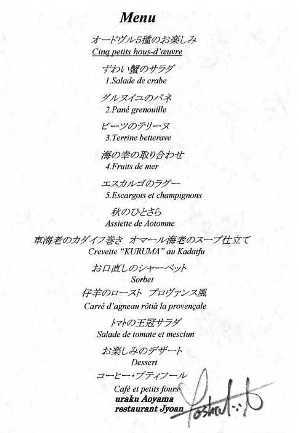 Menu
オードヴル5種のお楽しみ
Cinq petits hous-d'œuvre
ずわい蟹のサラダ
1.Salade de crabe
グルヌイユのパネ
2.Pané grenouille
ビーツのテリーヌ
3.Terrine betterave
海の幸の取り合わせ
4.Fruits de mer
エスカルゴのラグー
5.Escargots et champignons
秋のひとさら
Assiette de Aotomne
車海老のカダイフ巻き オマール海老のスープ仕立て
Crevette "KURUMA" au Kadaifu
お口直しのシャーベット
Sorbet
仔羊のロースト プロヴァンス風
Carré d'agneau rôtià la provençale
トマトの王冠サラダ
Salade de tomate et mesclun
お楽しみのデザート
Dessert
コーヒー・プティフール
Café et petits fours
uraku Aoyama
restaurant Jyoan